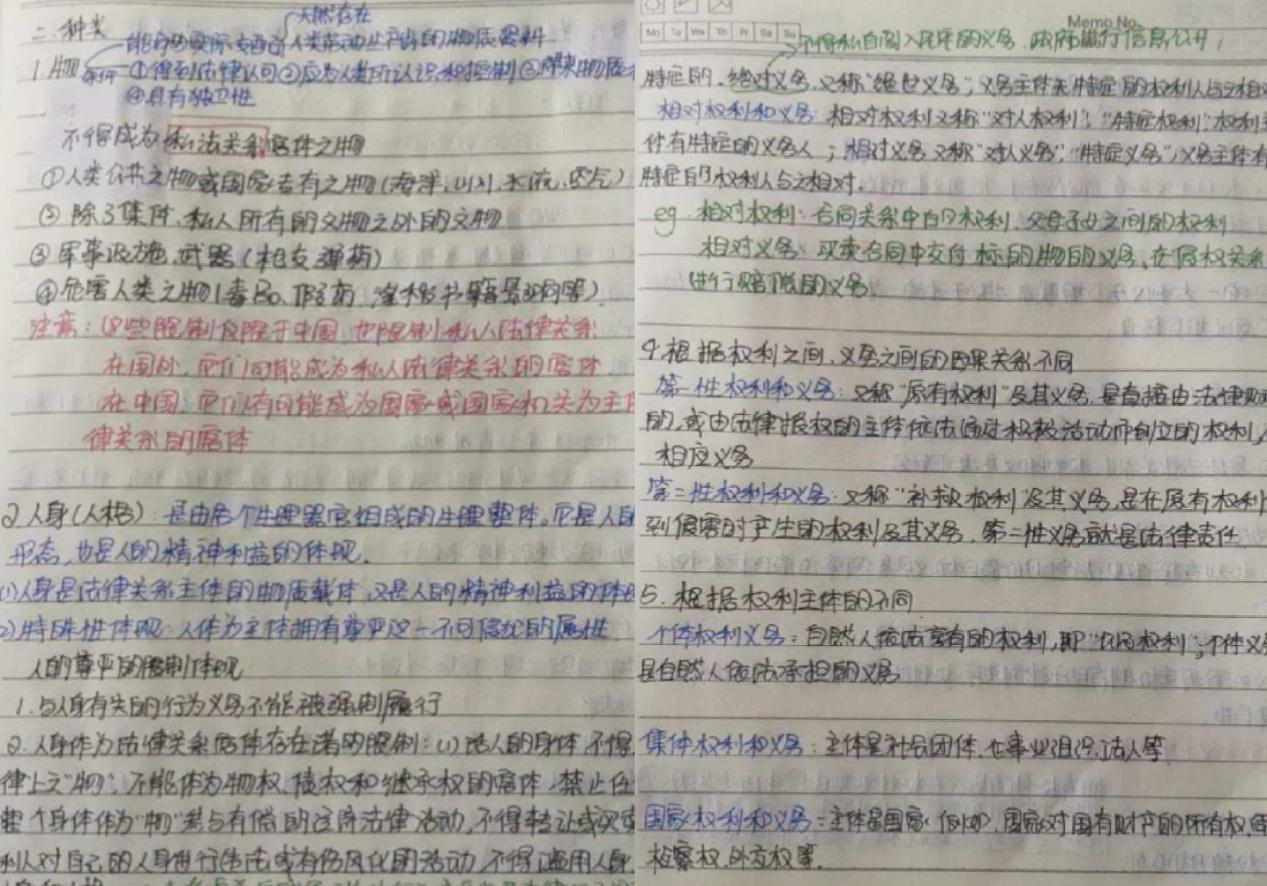 二、种类
天然存在
能够
人类劳动生产出的物质资料
1.物
条件
①得到法律认可②应为人类所认识和控制③
④具有独立性
不得成为私法关系客体之物
①人类公共之物或国家专有之物(海洋、山川、水流、空气)
② 除了集体、私人所有的文物之外的文物
③ 军事设施、武器(枪支弹药)
④危害人类之物(毒品、假药、淫秽书籍等)
注意:这些限制仅限于中国,也限制私人法律关系
在国外,它们可能成为私人法律关系的客体
在中国,它们有可能成为国家或国家机关为主
律关系的客体
2.人身(人格):是由各个生理器官组成的生理整体。它是人的
形态,也是人的精神利益的体现.
(1)人身是法律关系主体的物质载体,又是人的精神利益的体
(2)特殊性体现:人作为主体拥有尊严这一不可侵犯的属性
人的尊严的限制体现
1.与人身有关的行为义务不能被强制履行
2.人身作为法律关系客体存在诸的限制:(1)活人的身体,不得
律上之"物";不能作为物权、债权和继承权的客体,禁止任
整个身体作为"物"参与有偿的经济法律活动,不得转让或买卖
利人对自己的人身进行违法或有伤风化的活动,不得滥用人身
Memo No.
Mo Tu We Th Fr Sa Su
不得私自闯入民宅的义务,政府进行信息公开,
特定的.绝对义务,又称"绝世义务",义务主体无特定的权利人与之相对
相对权利和义务:相对权利又称"对人权利"、"特定权利",权利主
体有特定的义务人;相对义务又称"对人义务"、"特定义务",义务主体有
特定的权利人与之相对.
eg 相对权利:合同关系中的权利、父母子女之间的权利
相对义务:买卖合同中交付标的物的义务、在侵权关系
进行赔偿的义务
4.根据权利之间、义务之间的因果关系不同
第一性权利和义务:又称"原有权利"及其义务,是直接由法律规
的,或由法律授权的主体依法通过积极活动而创立的权利,
相应义务
第二性权利和义务:又称"补救权利"及其义务,是在原有权利
到侵害时产生的权利及其义务,第二性义务就是法律责任
5.根据权利主体的不同
个体权利义务:自然人依法享有的权利,即"公民权利";个体义务
是自然人依法承担的义务
集体权利和义务:主体是社会团体、企事业组织、法人等
国家权利和义务:主体是国家,例如,国家对国有财产的所有权、
检察权、外交权等.